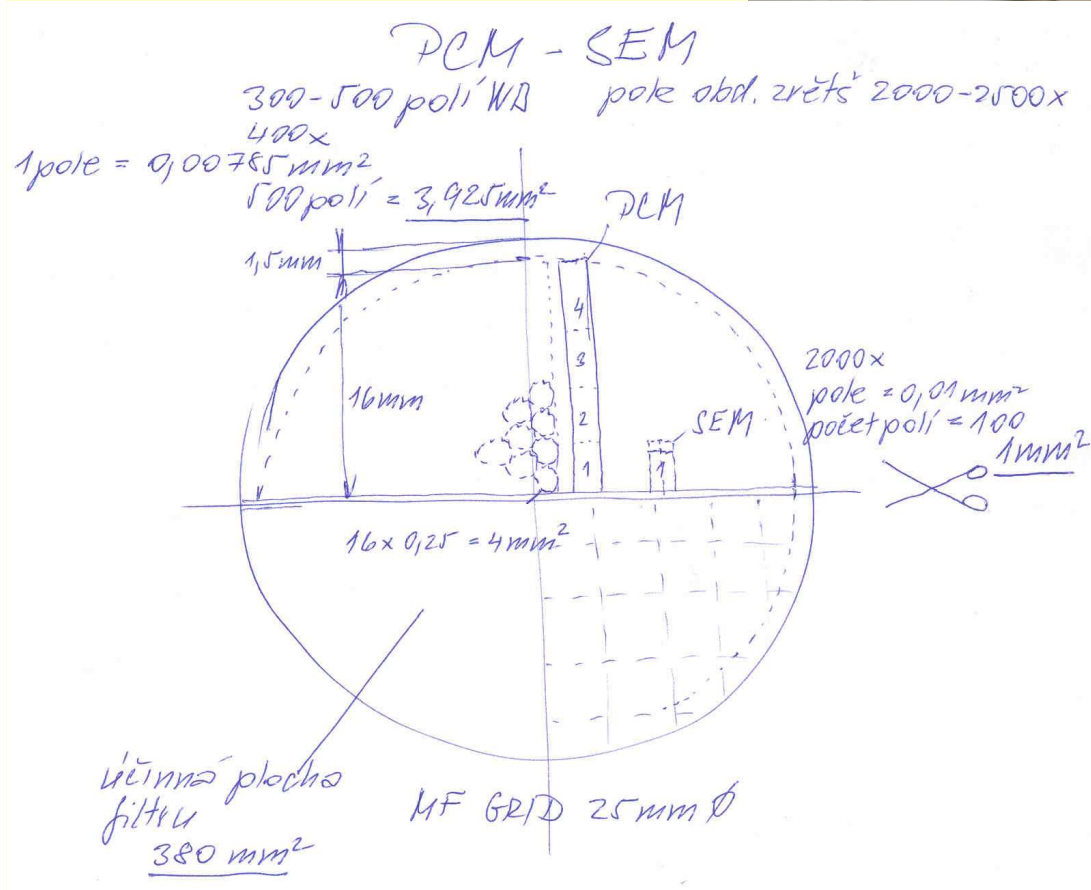 PCM - SEM
300-500 polí WB
pole obd. zvětš 2000-2500x
400x
1pole = 0,00785mm²
500polí = 3,925mm²
1,5mm
PCM
4
3
2
1
16mm
2000x
pole = 0,01mm²
počet polí = 100
1mm²
SEM
1
16x0,25 = 4mm²
účinná plocha
filtru
380 mm²
MF GRID 25mm Ø